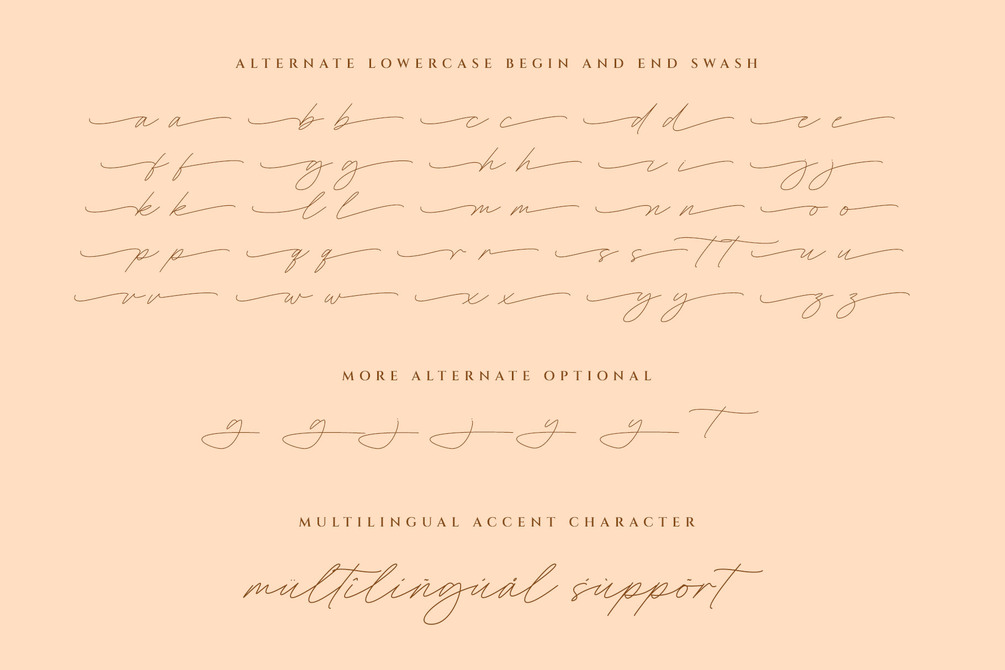 ALTERNATE LOWERCASE BEGIN AND END SWASH
a a b b c c d d e e
f f g g h h i i j j
k k l l m m n n o o
p p q q r r s s t t u u
v v w w x x y y z z
MORE ALTERNATE OPTIONAL
g g j j y y t
MULTILINGUAL ACCENT CHARACTER
mültîlïñgúál śùppōrt